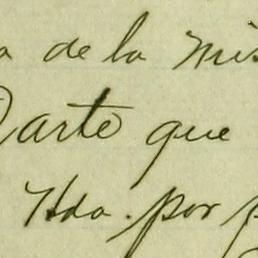 a de la mis
Parte que
Hda. por p